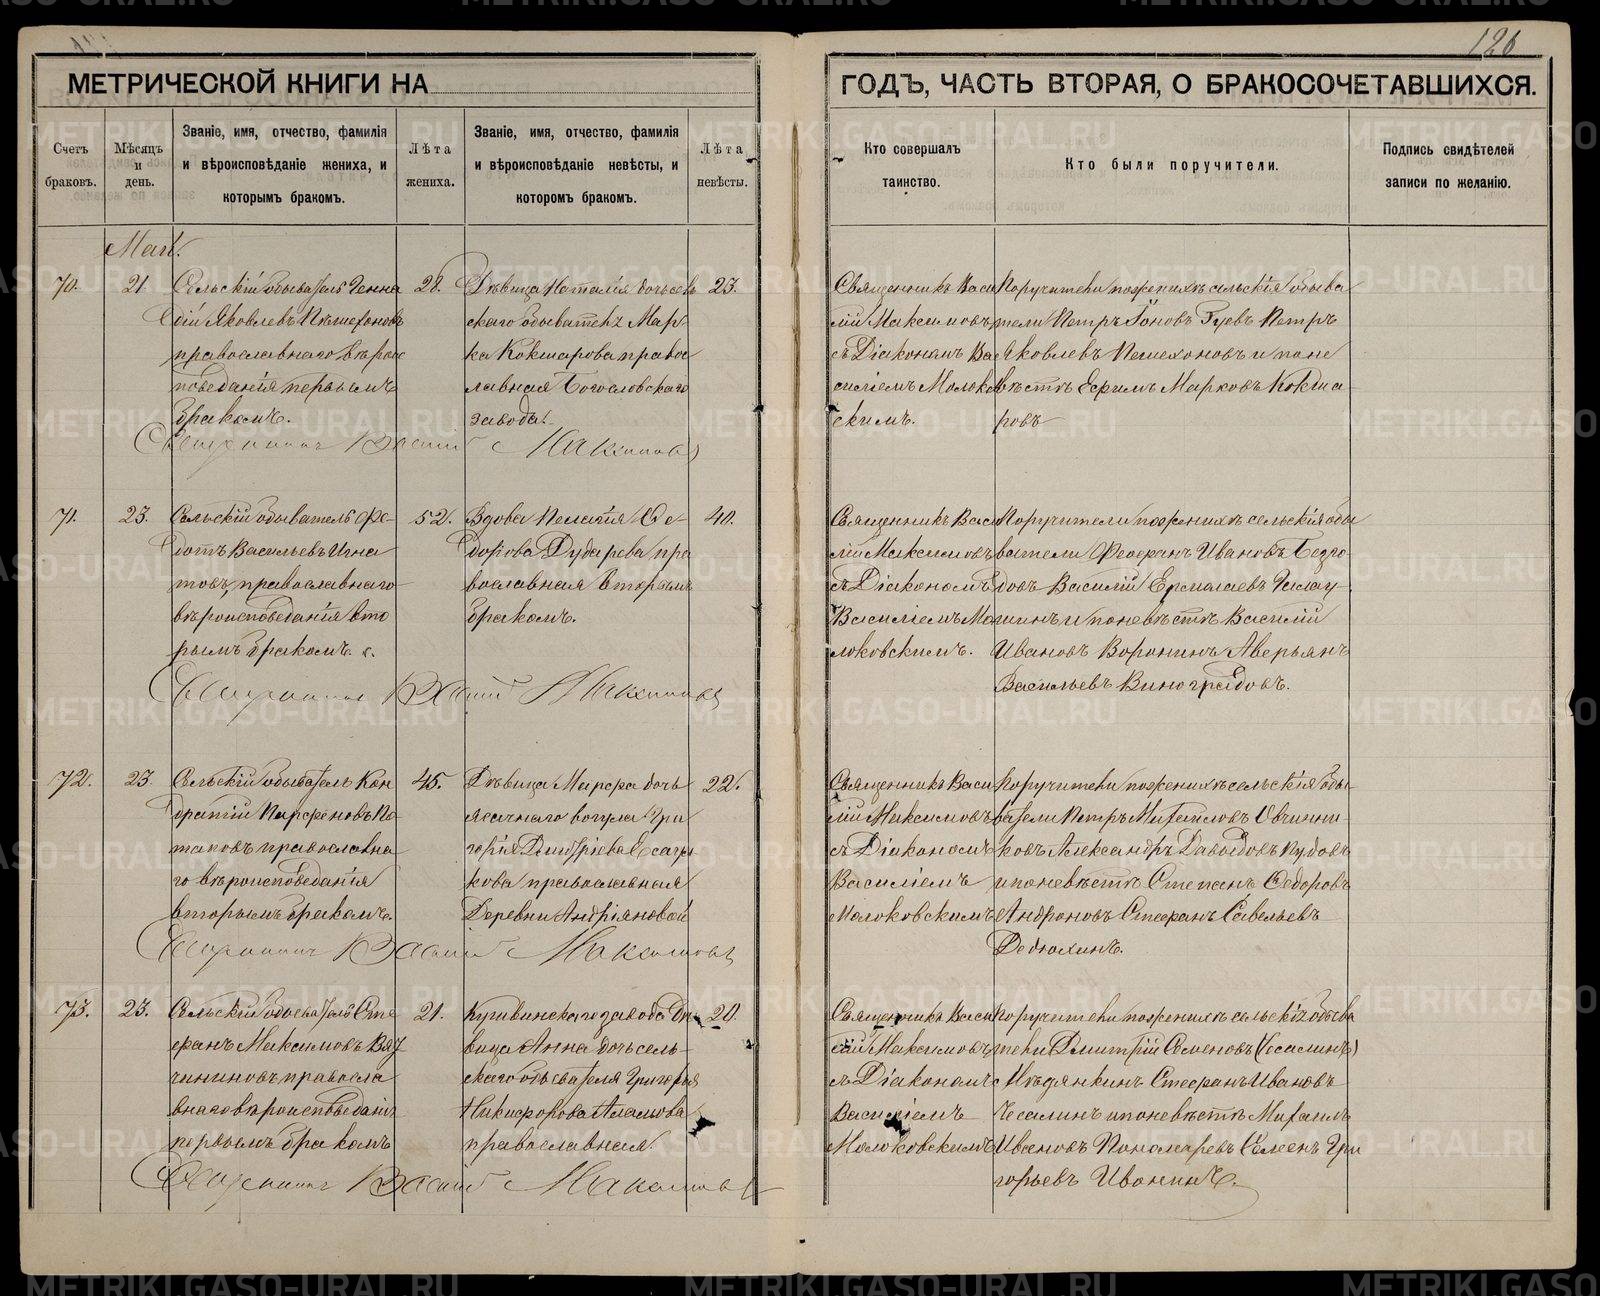 126
МЕТРИЧЕСКОЙ КНИГИ НА
ГОДЪ, ЧАСТЬ ВТОРАЯ, О БРАКОСОЧЕТАВШИХСЯ.
Счетъ браковъ.
Мѣсяцъ и день.
Званіе, имя, отчество, фамилія
и вѣроисповѣданіе жениха, и
которымъ бракомъ.
Лѣта жениха.
Званіе, имя, отчество, фамилія
и вѣроисповѣданіе невѣсты, и
которомъ бракомъ.
Лѣта невѣсты.
Кто совершалъ
таинство.
Кто были поручители.
Подпись свидѣтелей
записи по желанію.
70.
21.
Сельскій обыватель Генна
дій Яковлевъ Пѣшехоновъ
православнаго вѣроис
повѣданія первымъ
бракомъ.
28.
Дѣвица Наталія дочь сель
скаго обывателя Мар
ка Кокшарова правос
лавная Богословскаго
завода.
23.
Священникъ Васи
лій Максимовъ
съ Діакономъ Ва
силіемъ Молоков
скимъ.
Поручители по женихѣ сельскія обыва
тели Петръ Іоновъ Гуевъ Петръ
Яковлевъ Пешехоновъ и по не
вѣстѣ Ефимъ Марковъ Кокша
ровъ
Священникъ Василій Максимовъ
71.
23.
Сельскій обыватель Фе-
дотъ Васильевъ Игна
товъ, православнаго
вѣроисповѣданія вто
рымъ бракомъ.
52.
Вдова Пелагія Фе-
дорова Дударева пра
вославная вторымъ
бракомъ.
40.
Священникъ Васи
лій Максимовъ
съ Діакономъ
Василіемъ Мо
локовскимъ.
Поручители по женихѣ сельскія обы
ватели Феофанъ Ивановъ
Василій Ермолаевъ
и по невѣстѣ Василій
Ивановъ Воронинъ Аверьянъ
Васильевъ Виноградовъ.
Священникъ Василій Максимовъ
72.
23
Сельскій обыватель Кон
дратій Парфеновъ По
таповъ православна
го вѣроисповѣданія
вторымъ бракомъ.
45.
Дѣвица Марфа дочь
ясачнаго вогула Гри
горія Дмитріева
кова православная
Деревни Андріяновой
22.
Священникъ Васи
лій Максимовъ
съ Діакономъ
Василіемъ
Молоковскимъ
Поручители по женихѣ сельскія обы
ватели Петръ Михайловъ Овчинни
ковъ Александръ Давыдовъ Пудовъ
и по невѣстѣ Степанъ Федоровъ
Андроновъ Стефанъ Савельевъ
Дедюхинъ.
Священникъ Василій Максимовъ
73.
23.
Сельскій обыватель Сте
фанъ Максимовъ Вят
чининовъ правосла
внаго вѣроисповѣданія
первымъ бракомъ
21.
Кушвинскаго завода Дѣ
вица Анна дочь сель-
скаго обывателя Григорья
Никифорова
православная.
20.
Священникъ Васи
лій Максимовъ
съ Діакономъ
Василіемъ
Молоковскимъ
Поручители по женихѣ сельскія обыва
тели Дмитрій Семеновъ (
Мѣдянкинъ Стефанъ Ивановъ
Чесалинъ и по невѣстѣ Михаилъ
Ивановъ Пономаревъ Семенъ Гри
горьевъ Ивонинъ.
Священникъ Василій Максимовъ
METRIKI.GASO-URAL.RU